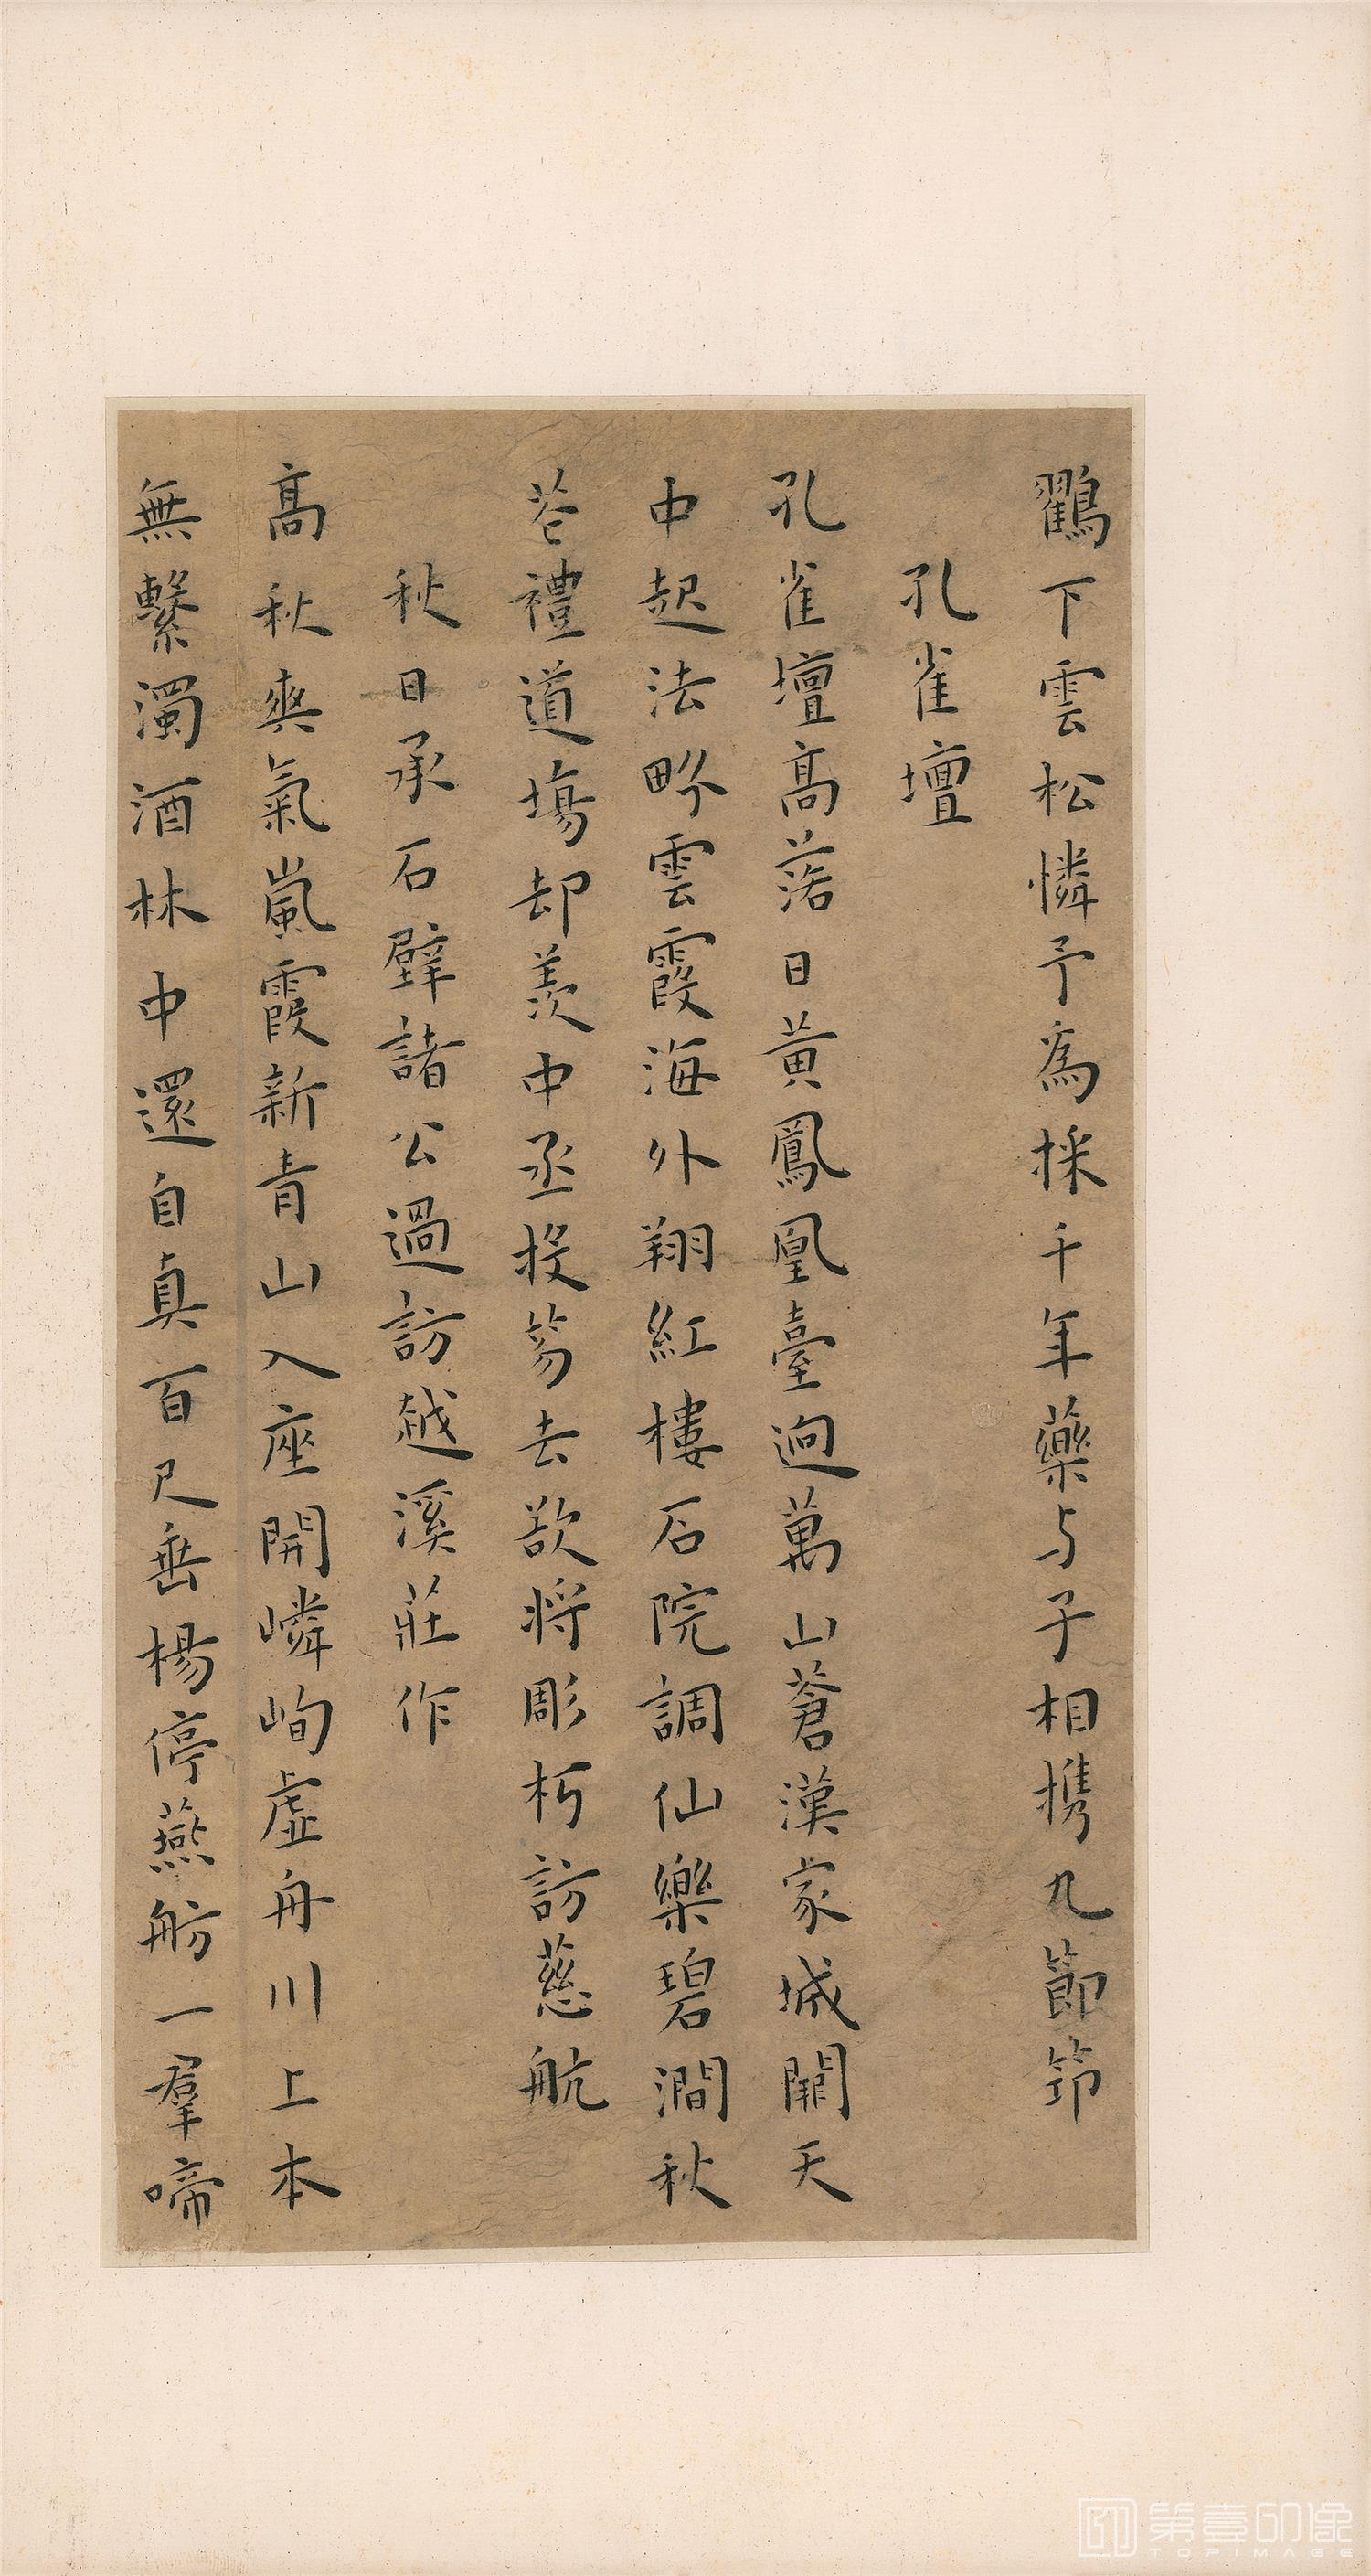 鸛下雲松憐予為採千年藥与子相攜九節筇
孔雀壇
孔雀壇高落日黃鳳凰臺迥萬山蒼漢家城闕天
中起法界雲霞海外翔紅樓石院調仙樂碧澗秋
苍禮道場却羨中丞投笏去欲將彫朽訪慈航
秋日承石壁諸公過訪越溪莊作
高秋爽氣嵐霞新青山入座開嶙峋虛舟川上本
無繫濁酒林中還自真百尺垂楊停燕舫一羣啼
第壹印像
TOPIMAGE